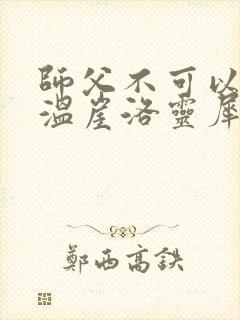 師父不可以
溫崖洛靈犀
鄭西高鉄